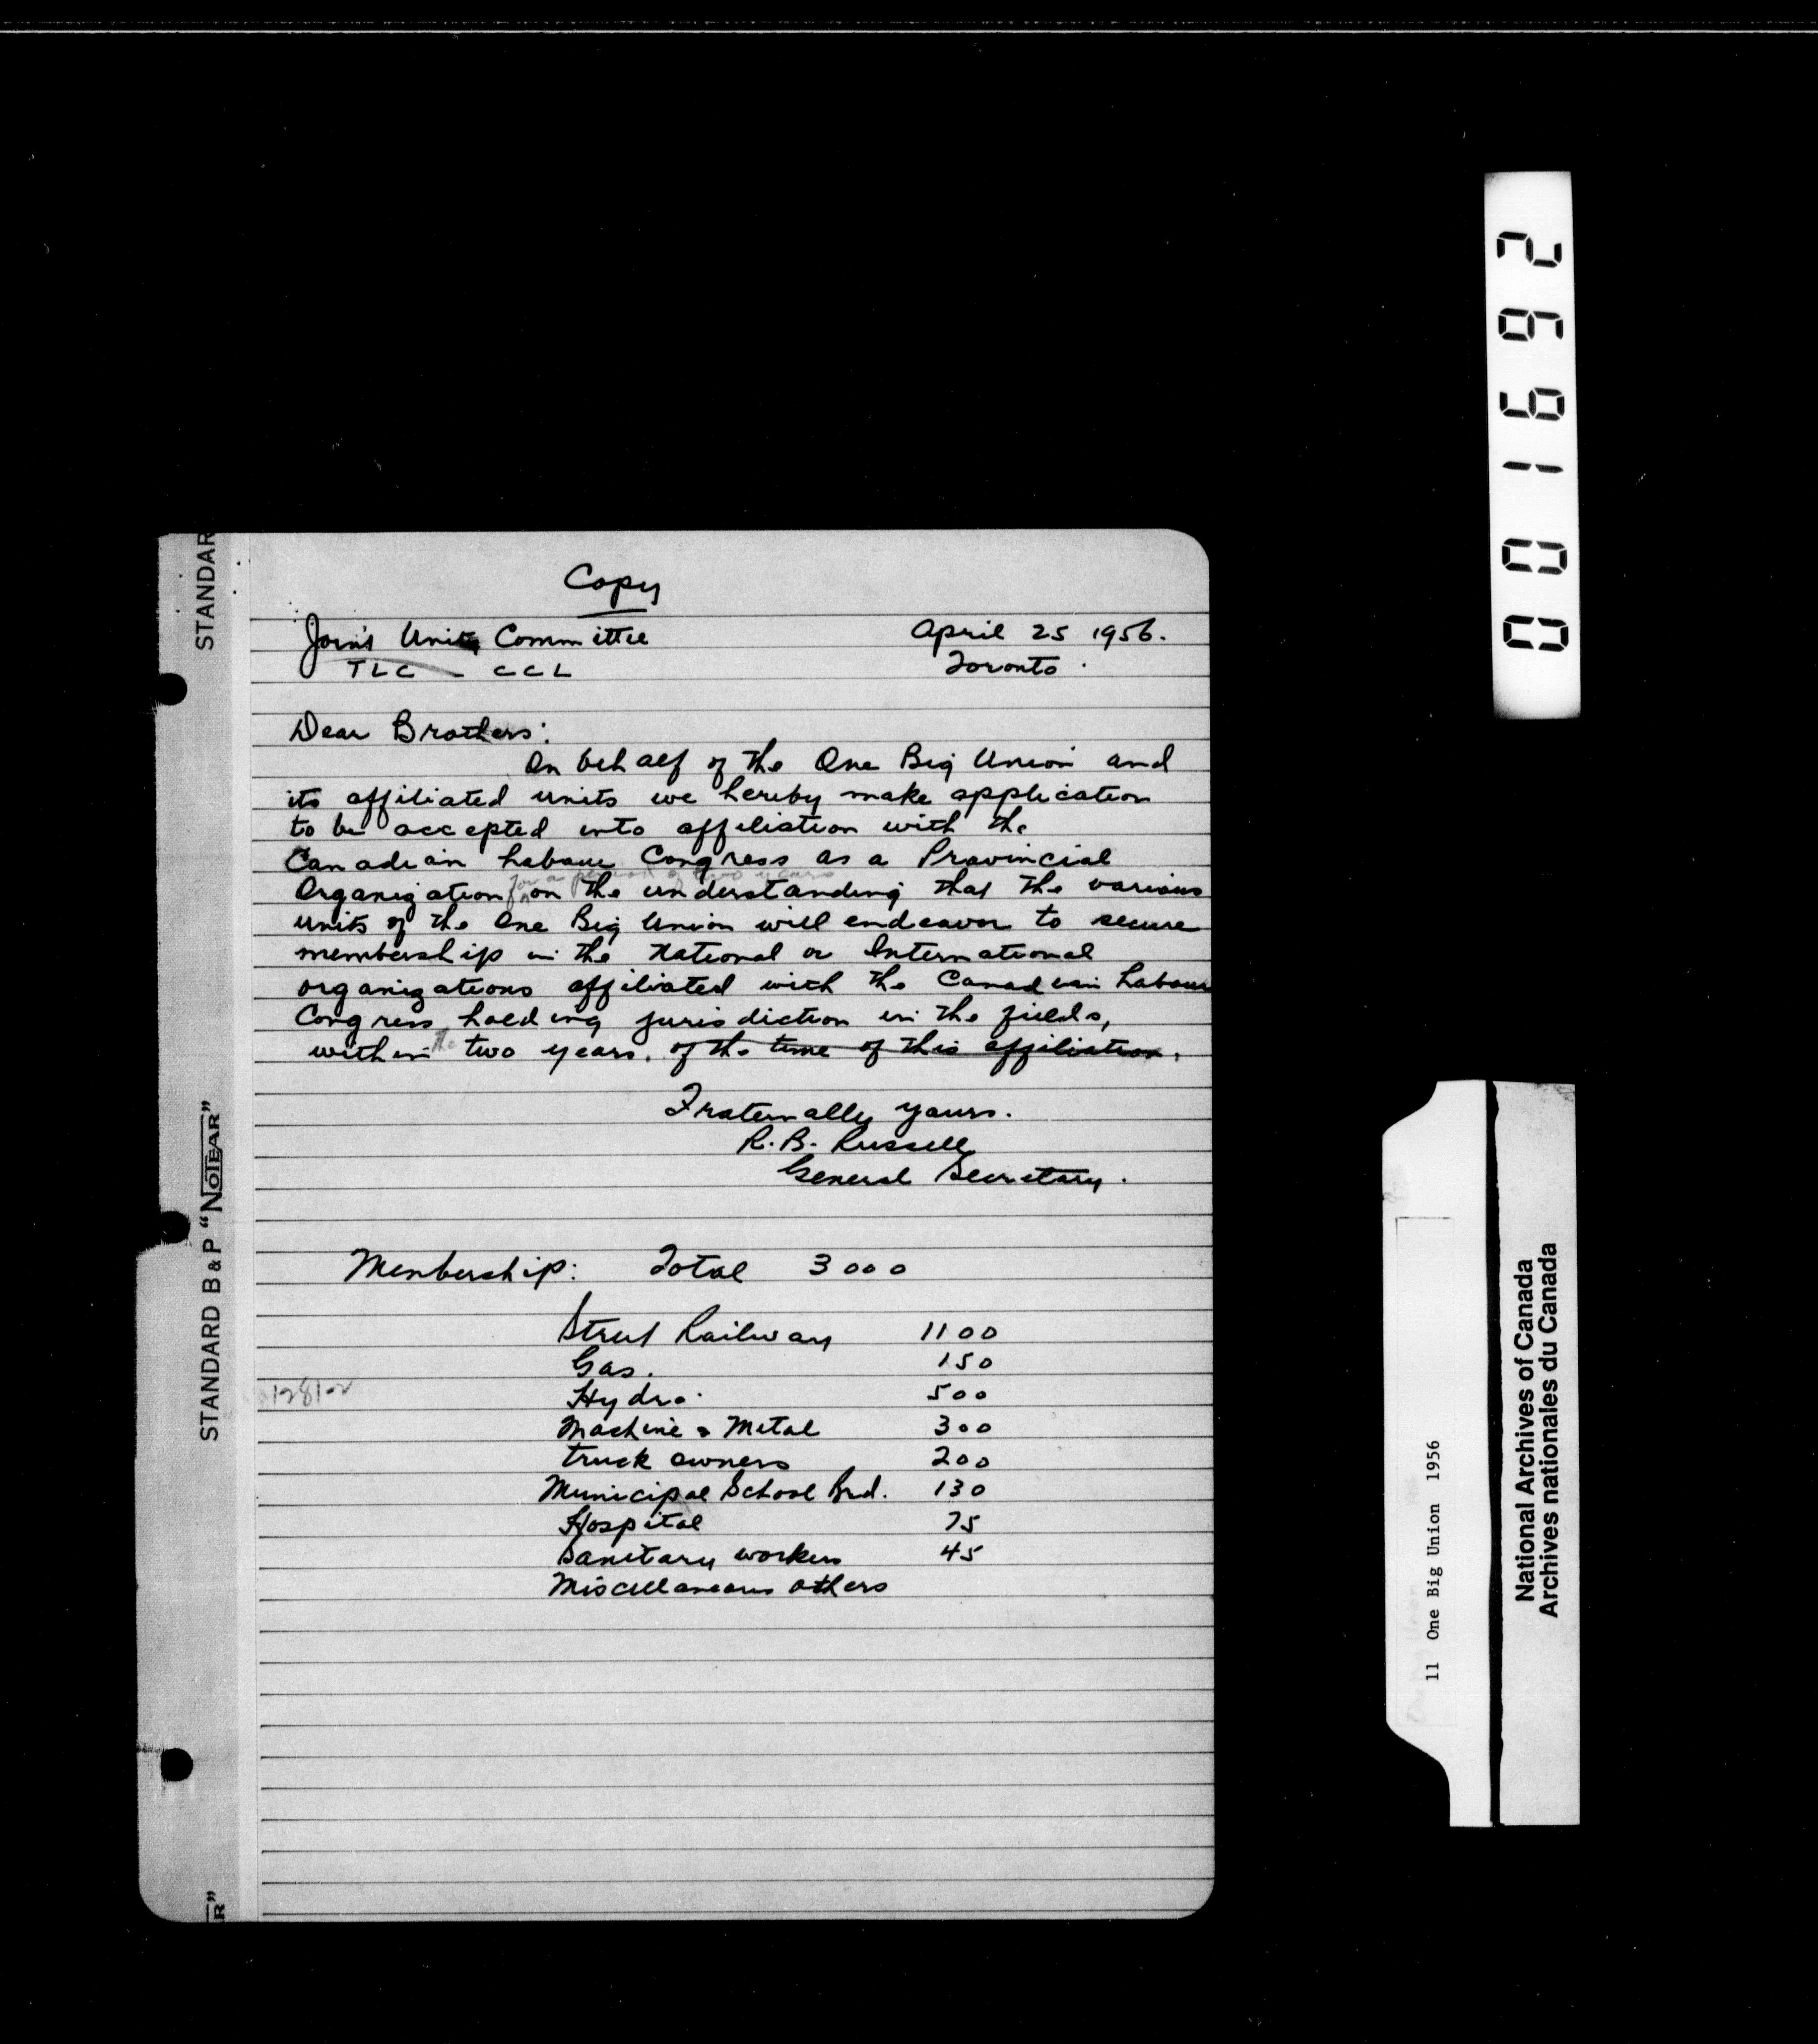 Copy
Joint Unity Committee
TLC - CCL
April 25 1956.
Toronto.
Dear Brothers:
On behalf of the One Big Union and
its affiliated units we hereby make application
to be accepted into affiliation with the
Canadian Labour Congress as a Provincial
for a period of two years
Organization on the understanding that the various
units of the One Big Union will endeavor to secure
membership in the National or International
organizations affiliated with the Canadian Labour
Congress, holding jurisdiction in the fields,
within the two years. of the time of this affiliation.
Fraternally yours.
R. B. Russell
General Secretary.
Membership: Total 3000
Street Railway 1100
Gas. 150
Hydro. 500
Machine & Metal 300
truck owners 200
Municipal School Brd. 130
Hospital 75
Sanitary workers 45
Miscellaneous others
STANDAR
STANDARD B & P "NOTEAR"
R"
001692
11 One Big Union 1956
National Archives of Canada
Archives nationales du Canada